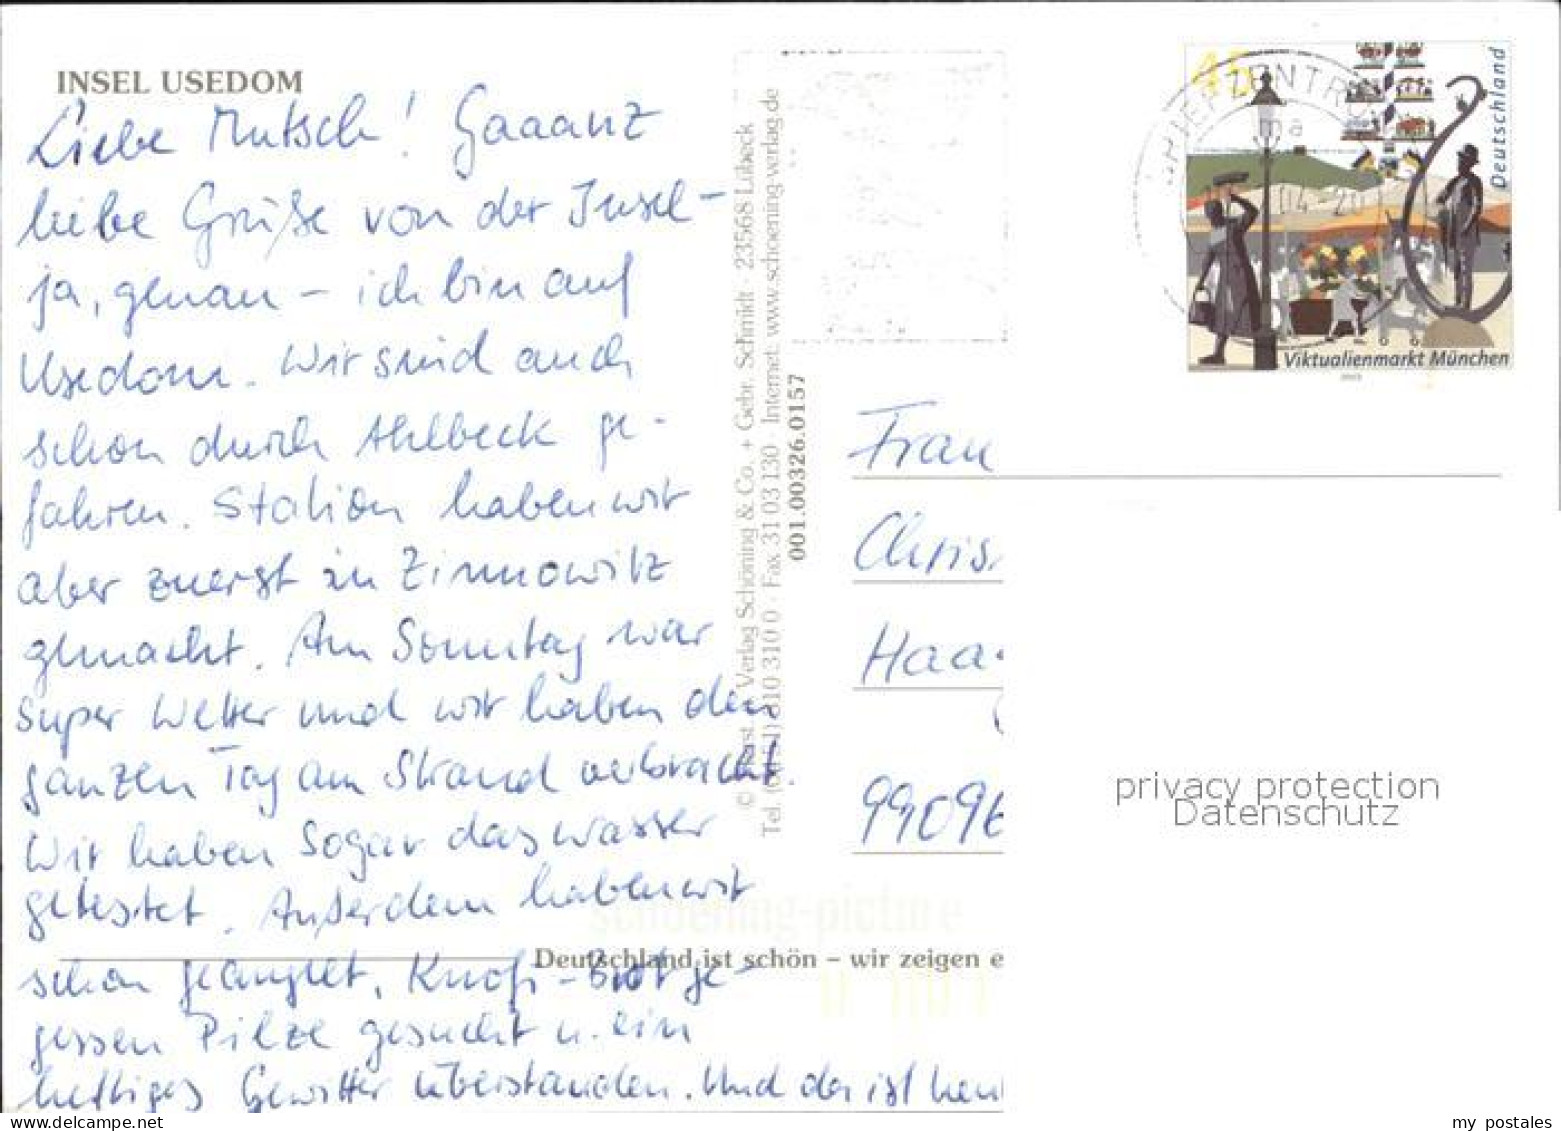 INSEL USEDOM
Liebe Mutsch! Gaaanz
liebe Grüße von der Insel-
ja, genau – ich bin auf
Usedom. Wir sind auch
schon durch Ahlbeck ge-
fahren. Station haben wir
aber zuerst in Zinnowitz
gemacht. Am Sonntag war
super Wetter und wir haben den
ganzen Tag am Strand verbracht.
Wir haben sogar das Wasser
getestet. Außerdem haben wir
schon geangelt, Knofi-Brot ge-
gessen Pilze gesucht u. ein
heftiges Gewitter überstanden. Und da ist
Verlag Schöning & Co. + Gebr. Schmidt · 23568 Lübeck
310 0 · Fax 31 03 130 · Internet: www.schoening-verlag.de
001.00326.0157
schoening-picture
Deutschland ist schön – wir zeigen e
45
Deutschland
Viktualienmarkt München
2003
BRIEFZENTR
04-20
Frau
Chris
Haa
99096
privacy protection
Datenschutz
my postales